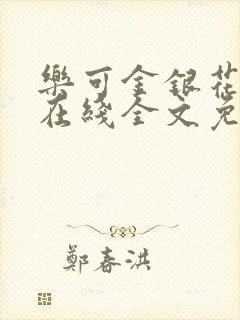 樂可金銀花
在綫全文免
鄭春洪